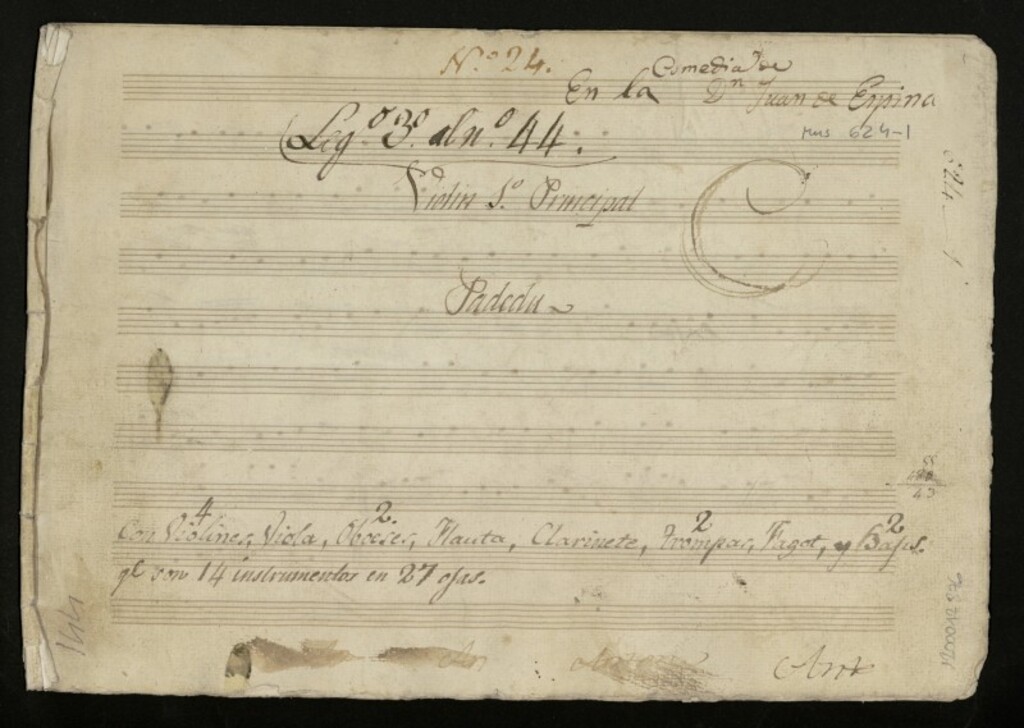 N.º 24.
Comedia de
En la Dn Juan de Espina
Leg.º 3º. al nº. 44.
Mus 624-1
Violin 1º. Principal
Padedu
4 2 2 2
Con Violines, Viola, Oboeses, Flauta, Clarinete, trompas, Fagot, y Bajos.
qe. son 14 instrumentos en 27 ojas.
144